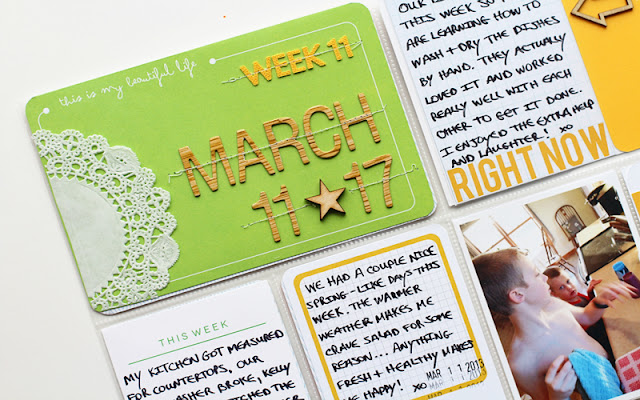 this is my beautiful life
WEEK 11
MARCH
11 17
THIS WEEK SO
ARE LEARNING HOW TO
WASH + DRY THE DISHES
BY HAND. THEY ACTUALLY
LOVED IT AND WORKED
REALLY WELL WITH EACH
OTHER TO GET IT DONE.
I ENJOYED THE EXTRA HELP
AND LAUGHTER! XO
RIGHT NOW
THIS WEEK
MY KITCHEN GOT MEASURED
FOR COUNTERTOPS, OUR
BROKE, KELLY
THE
WE HAD A COUPLE NICE
SPRING-LIKE DAYS THIS
WEEK. THE WARMER
WEATHER MAKES ME
CRAVE SALAD FOR SOME
REASON... ANYTHING
FRESH + HEALTHY MAKES
ME HAPPY! XO
MAR 11 2013